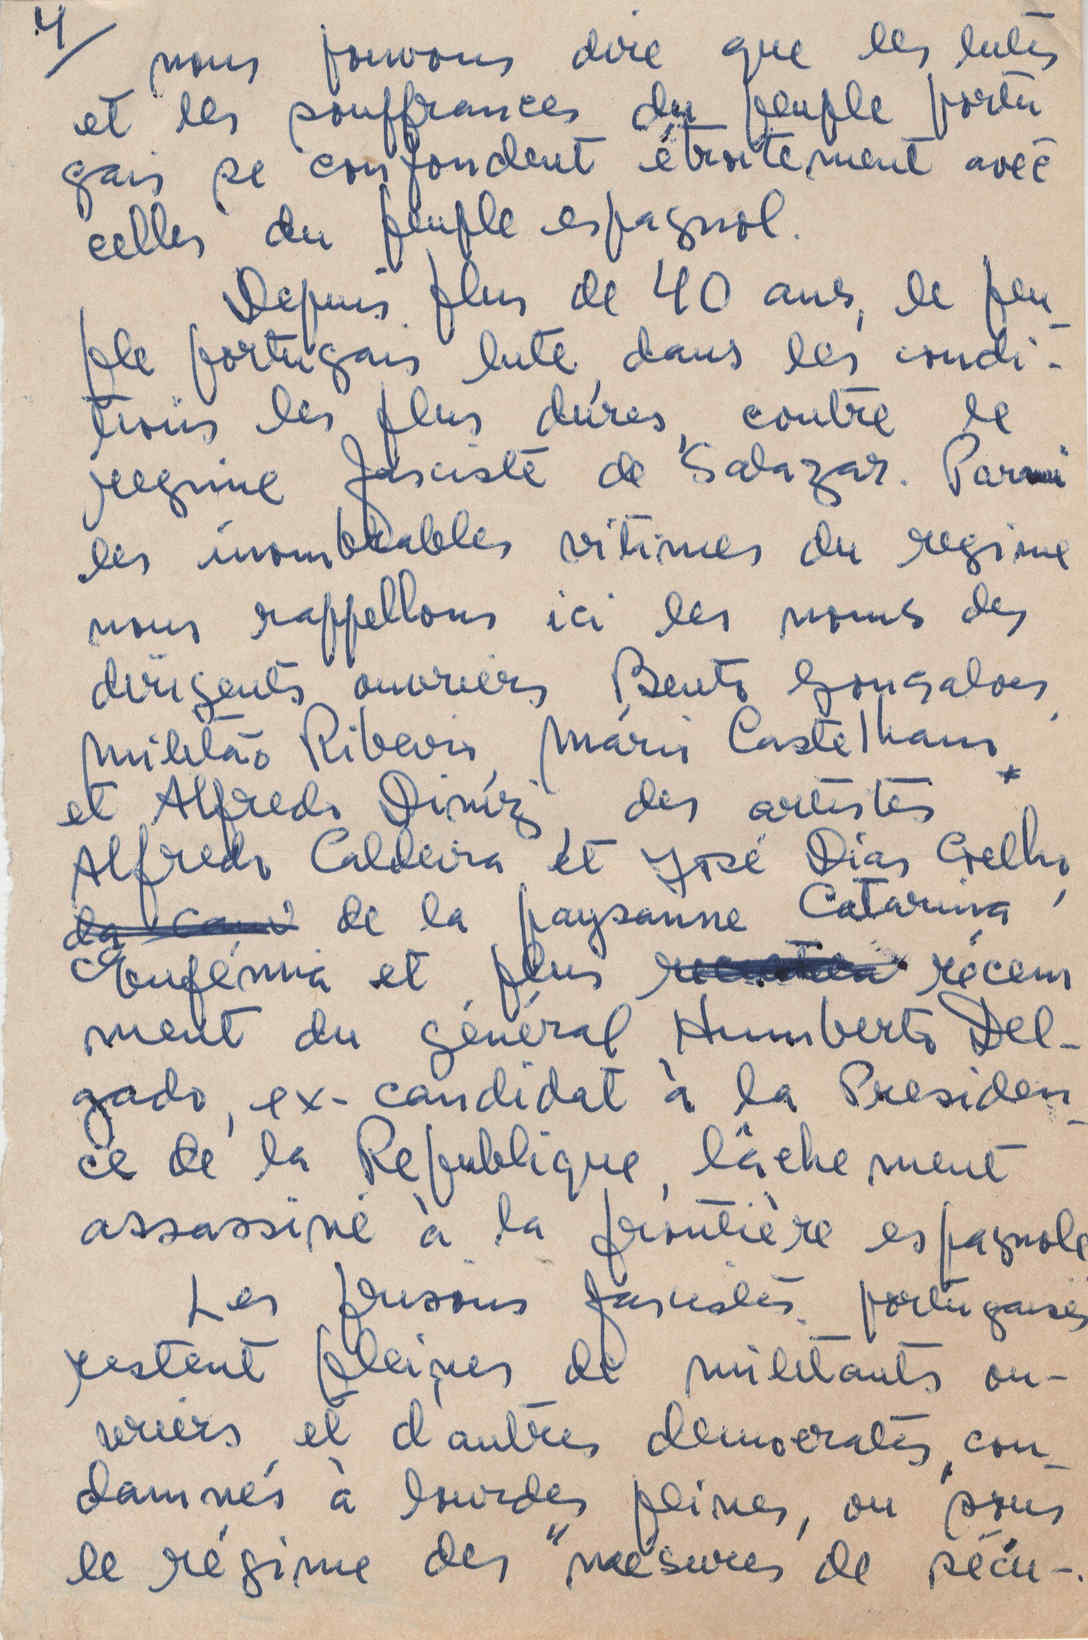 4/
nous pouvons dire que les lutes
et les souffrances du peuple portu
gais se confondent étroitement avec
celles du peuple espagnol.
Depuis plus de 40 ans, le peu-
ple portugais lute, dans les condi-
tions les plus dures, contre le
regime fasciste de Salazar. Parmi
les inombrables vitimes du regime
nous rappellons ici les noms des
dirigents ouvriers Bento Gonçalves,
Militão Ribeiro, Mário Castelhano,
et Alfredo Diniz, des artistes
Alfredo Caldeira et José Dias Coelho,
de la paysanne Catarina
Eufémia et plus récem
ment du général Humberto Del-
gado, ex-candidat à la Presiden-
ce de la Republique, lâchement
assassiné à la frontière espagnole
Les prisons fascistes portugaises
restent pleines de militants ou-
vriers et d'autres democrates, con-
damnés à lourdes peines, ou sous
le régime des "mesures de sécu-